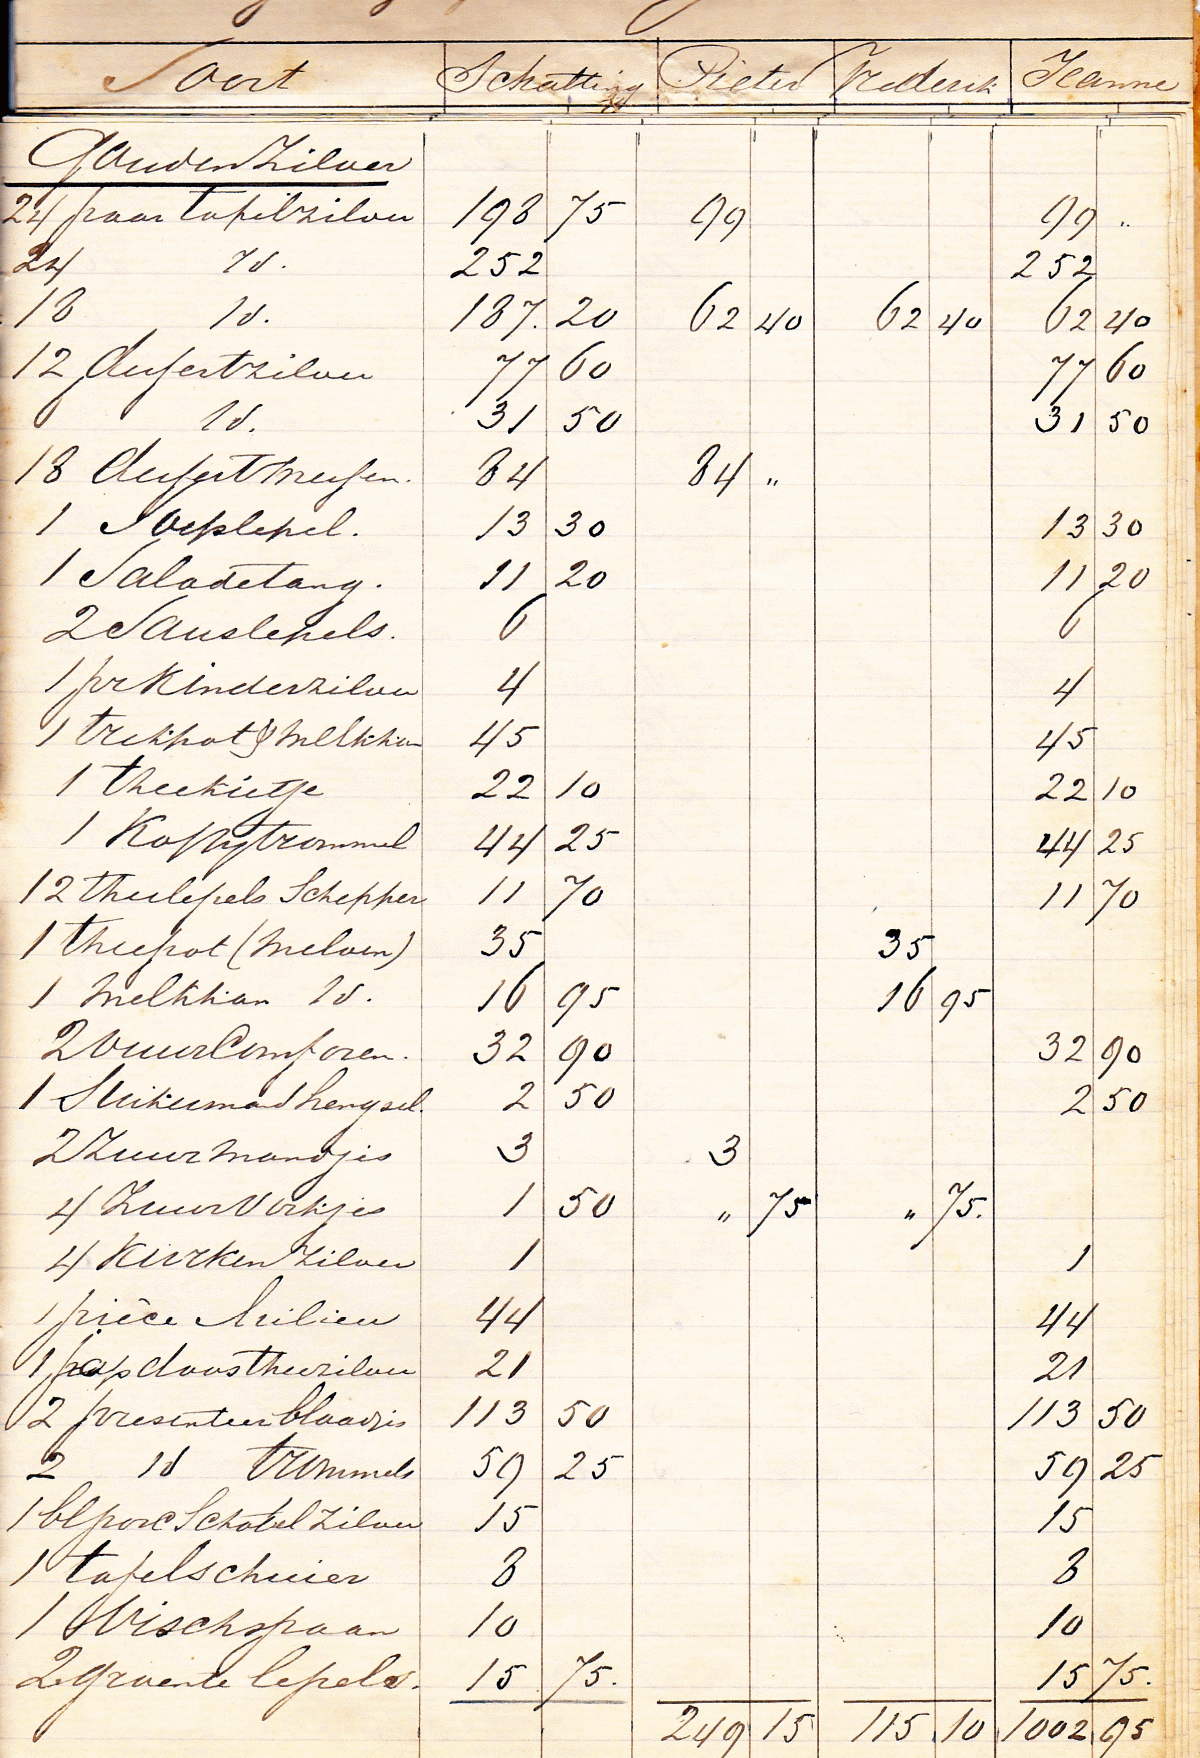 Soort Schatting Pieter Frederik Jeanne
Goud en Zilver
24 paar tafelzilver 198 75 99 99 "
24 Id. 252 252
18 Id. 187. 20 62 40 62 40 62 40
12 dessertzilver 77 60 77 60
Id. 31 50 31 50
18 dessertmessen. 84 84 "
1 Soeplepel. 13 30 13 30
1 Saladetang. 11 20 11 20
2 Sauslepels. 6 6
1 pr Kinderzilver 4 4
1 trekpot & Melkkan 45 45
1 theekistje 22 10 22 10
1 Koffytrommel 44 25 44 25
12 theelepels Schepper 11 70 11 70
1 theepot (Meloen) 35 35
1 Melkkan Id. 16 95 16 95
2 VuurComforen. 32 90 32 90
1 Suikermand hengsel. 2 50 2 50
2 Zuurmandjes 3 3
4 ZuurVorkjes 1 50 " 75 " 75.
4 Kurken Zilver 1 1
1 pièce Milieu 44 44
1 doos theezilver 21 21
2 presenteerblaadjes 113 50 113 50
2 id trommels 59 25 59 25
1 bl porc Schotel Zilver 15 15
1 tafelschuier 8 8
1 Vischspaan 10 10
2 groente lepels. 15 75. 15 75.
249 15 115 10 1002 95